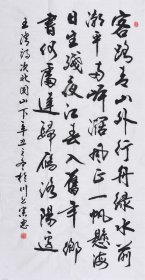 客路青山外行舟绿水前
潮平两岸阔风正一帆悬海
日生残夜江春入旧年乡
书何处达归雁洛阳边
王湾诗次北固山下辛丑之冬于川